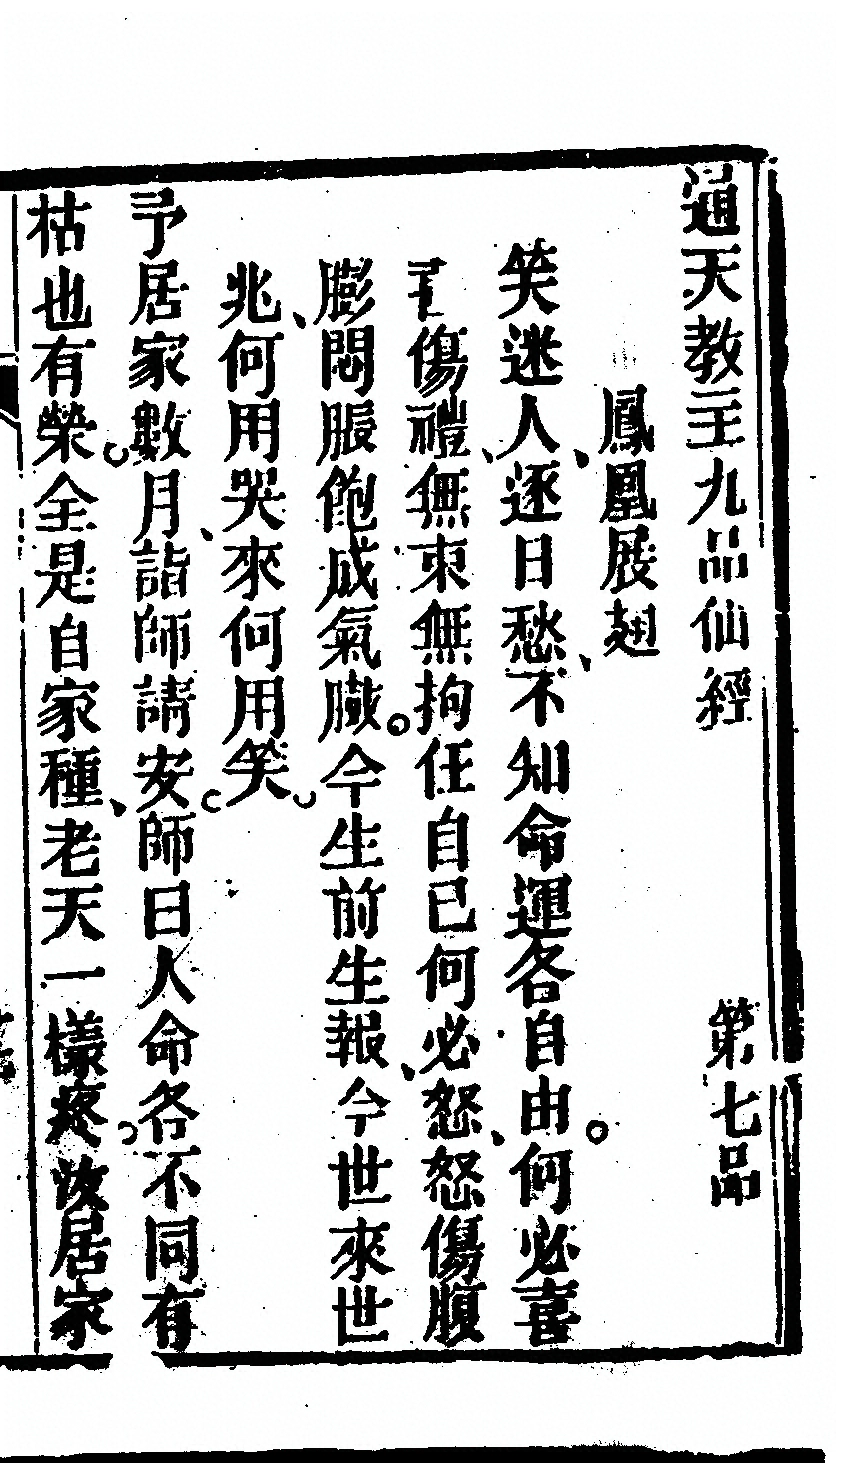 通天教主九品仙經 第七品
鳳凰展翅
笑迷人逐日愁不知命運各自由何必喜
喜傷禮無束無拘任自己何必怒怒傷腹
膨悶脹飽成氣臌今生前生報今世來世
兆何用哭來何用笑
予居家數月詣師請安師曰人命各不同有
枯也有榮全是自家種老天一樣疼汝居家